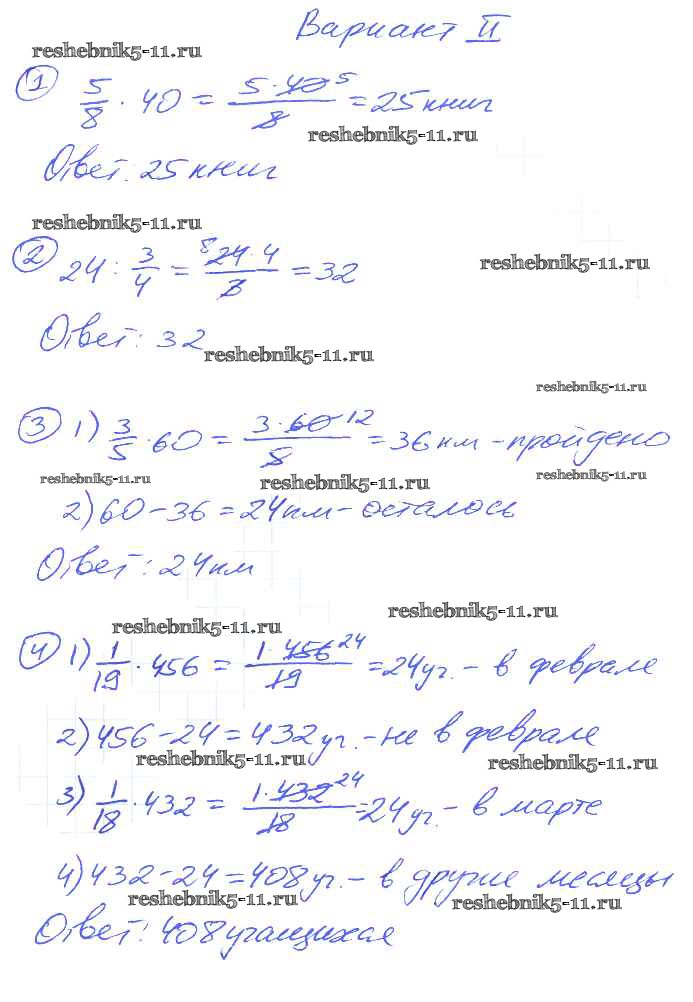 Вариант II
reshebnik5-11.ru
1 5/8 · 40 = 5·40 5/8 = 25 книг
reshebnik5-11.ru
Ответ: 25 книг
reshebnik5-11.ru
2 24 : 3/4 = 8 24·4/3 = 32
reshebnik5-11.ru
Ответ: 32
reshebnik5-11.ru
reshebnik5-11.ru
3 1) 3/5 · 60 = 3·60 12/5 = 36 км - пройдено
reshebnik5-11.ru reshebnik5-11.ru reshebnik5-11.ru
2) 60 - 36 = 24 км - осталось
Ответ: 24 км
reshebnik5-11.ru reshebnik5-11.ru
4 1) 1/19 · 456 = 1·456 24/19 = 24 уч. - в феврале
2) 456 - 24 = 432 уч. - не в феврале
reshebnik5-11.ru reshebnik5-11.ru
3) 1/18 · 432 = 1·432 24/18 = 24 уч. - в марте
4) 432 - 24 = 408 уч. - в другие месяцы
reshebnik5-11.ru reshebnik5-11.ru
Ответ: 408 учащихся